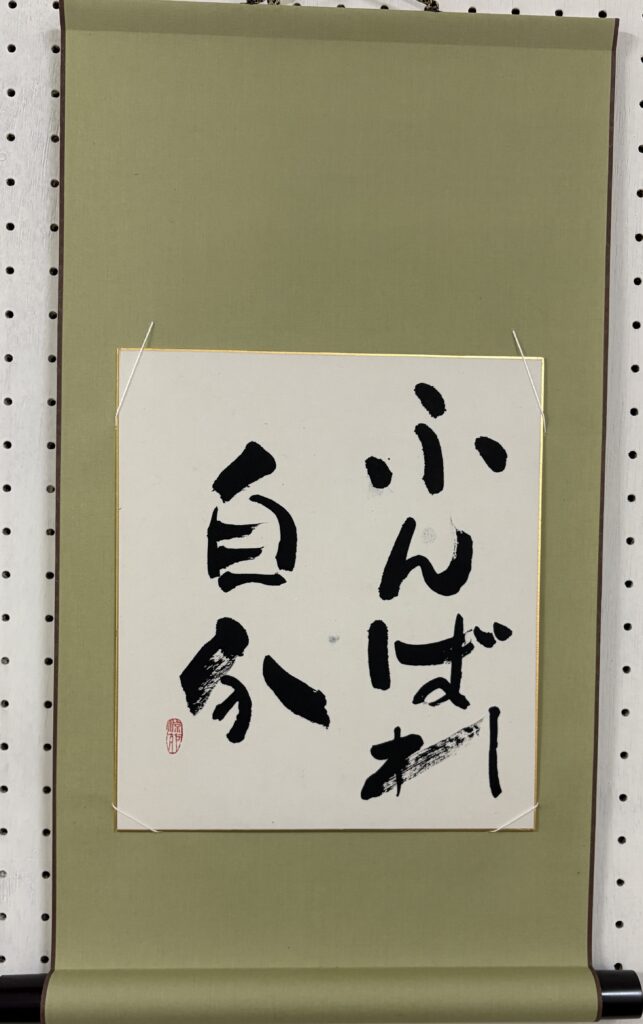 ふんばれ
自分